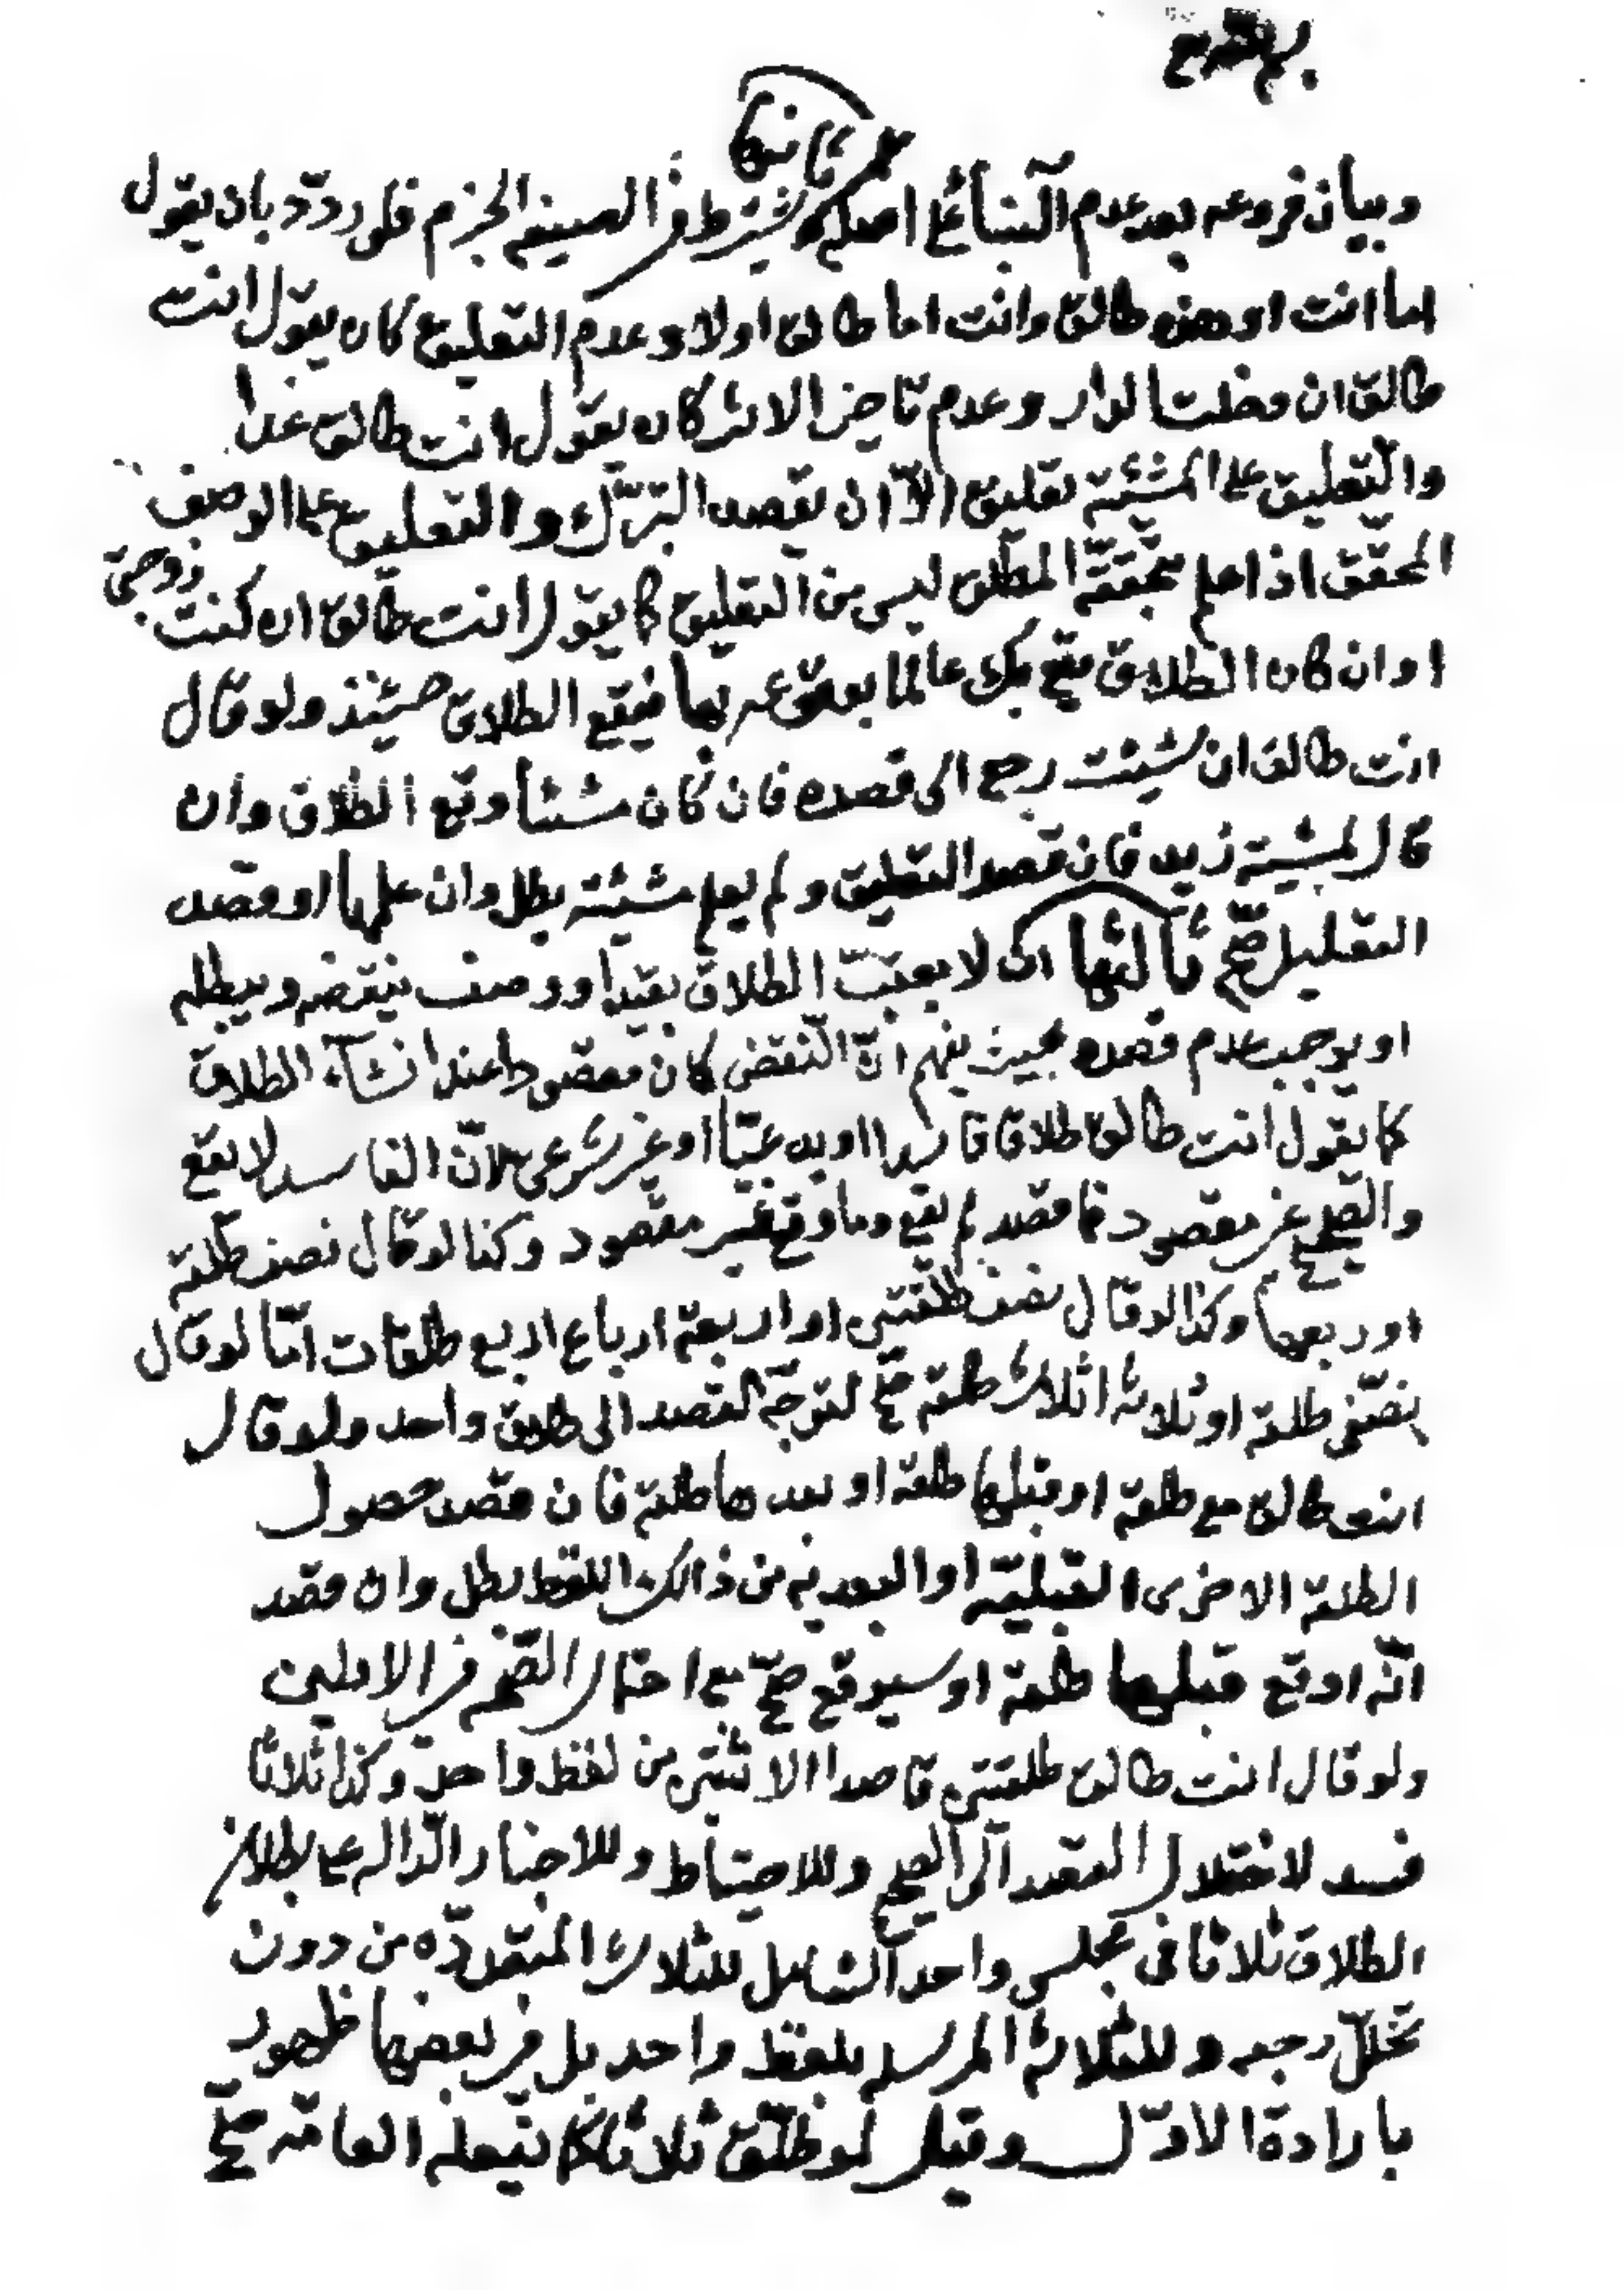 ثانيها
وبيان فروعه بعد عدم البناء على اصله يشترط في الصيغة الجزم فلو ردّد بان يقول
اما انت او هذه طالق وانت اما طالق اولا وعدم التعليق كان يقول انت
طالق ان دخلت الدار وعدم تاخير الاثر كان يقول انت طالق غدا
والتعليق على المشيّة تعليق الّا ان يقصد التبرّك والتعليق على الوصف
المحقّق اذا علم تحقّقه المطلق ليس من التعليق كما يقول انت طالق ان كنت زوجتي
او ان كان الطلاق يقع بك عالما بوقوعه بها فيقع الطلاق حينئذ ولو قال
انت طالق ان شئت رجع الى قصده فان كان منشأ وقع الطلاق وان
قال لمشيّة زيد فان قصد التعليق ولم يعلم مشيّته بطل وان علمها او قصد
التعليل صحّ ثالثها ان لا يعقب الطلاق بقيد او وصف ينقضه ويبطله
او يوجب عدم قصده بحيث يفهم انّ النقض كان مقصودا عند انشاء الطلاق
كما يقول انت طالق طلاقا فاسدا او بدعيّا او غير شرعي لانّ الفاسد لا يقع
والصحيح غير مقصود فما قصد لم يقع وما وقع غير مقصود وكذا لو قال نصف طلقة
او ربعها وكذا لو قال نصف طلقتين او اربعة ارباع اربع طلقات امّا لو قال
نصفي طلقة او ثلاثة اثلاث طلقة صحّ لتوجّه القصد الى طلاق واحد ولو قال
انت طالق مع طلقة او قبلها طلقة او بعدها طلقة فان قصد حصول
الطلقة الاخرى القبليّة او البعديه من ذالك اللفظ بطل وان قصد
انّه اوقع قبلها طلقة او سيوقع صحّ مع احتمال الصحّة في الاولين
ولو قال انت طالق طلقتين قاصدا الاثنتين من لفظ واحد وكذا ثلاثا
فسد لاختلال القصد الى الصحيح وللاحتياط وللاخبار الدّالة على بطلان
الطلاق ثلاثا في مجلس واحد الشامل للثلاث المتعدّدة من دون
تخلّل رجعه وللثلاثة المرسله بلفظ واحد بل في بعضها ظهور
بارادة الاوّل وقيل لو طلّق ثلاثا كما يفعله العامّة صحّ